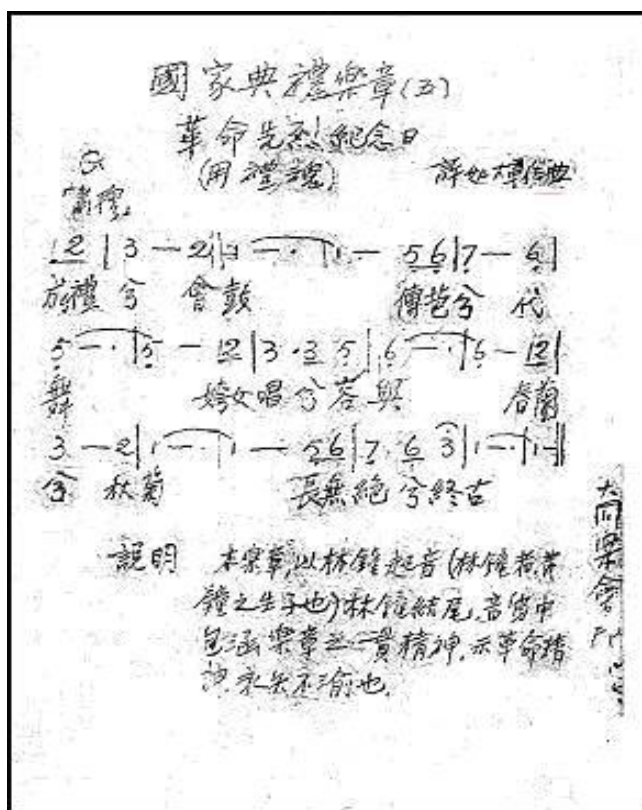 國家典禮樂章(五)
革命先烈紀念日
(用禮魂)
肅穆
12 | 3 — 2 | 1 — · | 1 — 56 | 7 — 6 |
成禮兮 會鼓 傳芭兮 代
5 — · | 5 — 12 | 3 · 3 5 | 6 — · | 6 — 12 |
舞 姱女唱兮容與 春蘭
3 — 2 | 1 — · | 1 — 56 | 7 · 6 3 | 1 — · | 1 — ||
兮 秋菊 長無絕兮終古
說明 本樂章,以林鐘起音(林鐘者黃
鐘之生子也)林鐘結尾,音階中
包涵樂章之一貫精神,示革命精
神永矢不渝也.
大同樂會